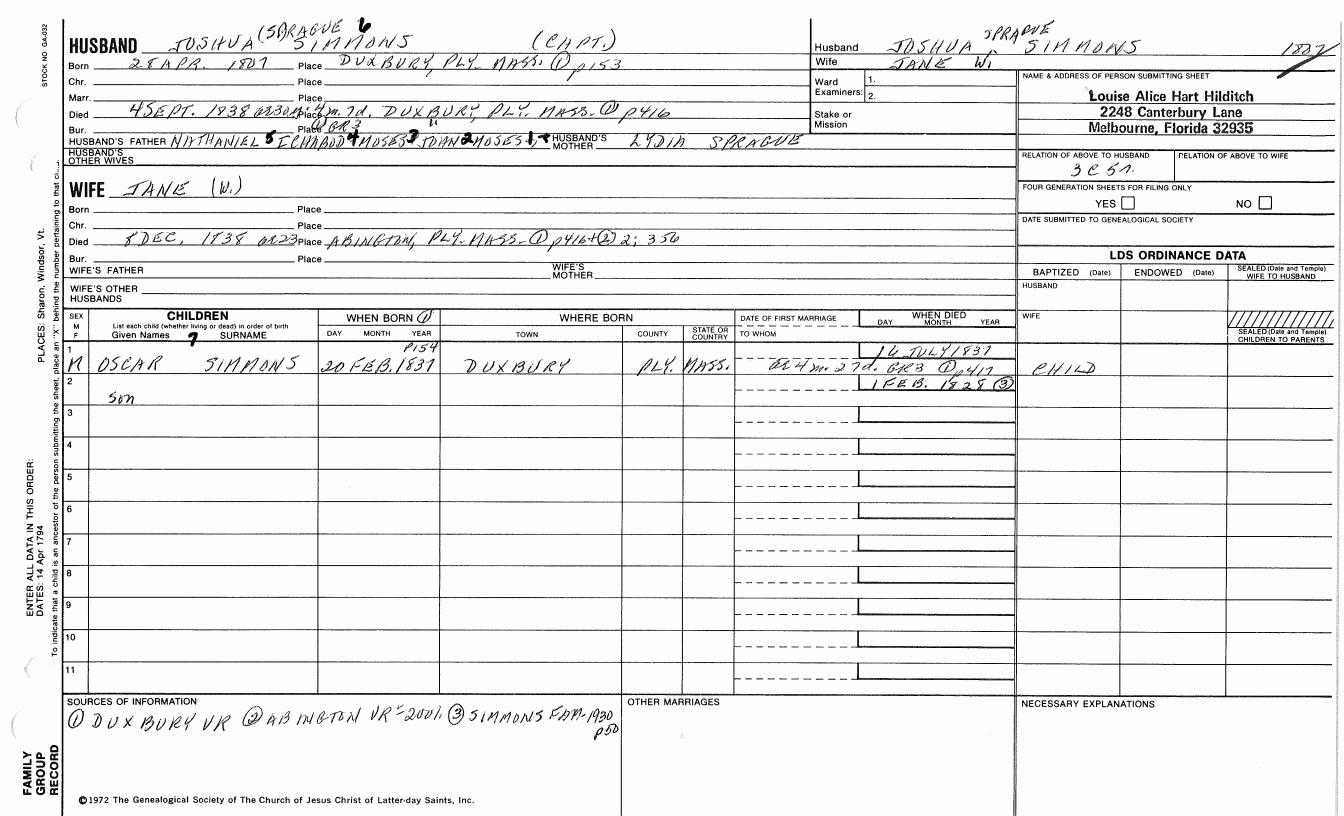 STOCK NO GA-032
HUSBAND JOSHUA (SPRAGUE 6 SIMMONS (CAPT.)
Born 28 APR. 1807 Place DUXBURY, PLY. MASS. ① p153
Chr. Place
Marr. Place
Died 4 SEPT. 1838 Place DUXBURY, PLY. MASS. ① p416
Bur. Place ① GR3 "
HUSBAND'S FATHER NATHANIEL 5 ICHABOD 4 MOSES 3 JOHN 2 MOSES 1 HUSBAND'S MOTHER LYDIA SPRAGUE
HUSBAND'S OTHER WIVES
WIFE JANE (W.)
Born Place
Chr. Place
Died 8 DEC. 1838 Place ABINGTON, PLY. MASS. ① p416 + ② 2; 356
Bur. Place
WIFE'S FATHER WIFE'S MOTHER
WIFE'S OTHER HUSBANDS
Husband JOSHUA SPRAGUE SIMMONS 1807
Wife JANE W.
Ward Examiners: 1.
2.
Stake or Mission
NAME & ADDRESS OF PERSON SUBMITTING SHEET
Louise Alice Hart Hilditch
2248 Canterbury Lane
Melbourne, Florida 32935
RELATION OF ABOVE TO HUSBAND RELATION OF ABOVE TO WIFE
3 C 5 r.
FOUR GENERATION SHEETS FOR FILING ONLY
YES NO
DATE SUBMITTED TO GENEALOGICAL SOCIETY
LDS ORDINANCE DATA
BAPTIZED (Date) ENDOWED (Date) SEALED (Date and Temple) WIFE TO HUSBAND
HUSBAND
WIFE
SEALED (Date and Temple) CHILDREN TO PARENTS
SEX M F CHILDREN WHEN BORN ① WHERE BORN DATE OF FIRST MARRIAGE WHEN DIED
List each child (whether living or dead) in order of birth
Given Names 7 SURNAME DAY MONTH YEAR TOWN COUNTY STATE OR COUNTRY TO WHOM DAY MONTH YEAR
1 p154 16 JULY 1837
M OSCAR SIMMONS 20 FEB. 1837 DUXBURY PLY. MASS. ae 4 m. 27 d. GR3 ① p417 CHILD
2 1 FEB. 1828 ③
son
3
4
5
6
7
8
9
10
11
SOURCES OF INFORMATION
① DUXBURY VR ② ABINGTON VR ③ SIMMONS FAM-1930
p50
OTHER MARRIAGES
NECESSARY EXPLANATIONS
©1972 The Genealogical Society of The Church of Jesus Christ of Latter-day Saints, Inc.
FAMILY GROUP RECORD
ENTER ALL DATA IN THIS ORDER:
DATES: 14 Apr 1794 PLACES: Sharon, Windsor, Vt.
To indicate that a child is an ancestor of the person submitting the sheet, place an "X" behind the number pertaining to that